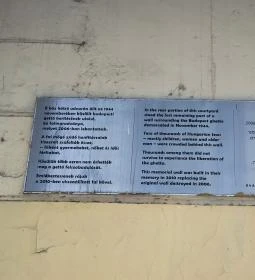 A ház hátsó udvarán állt az 1944
novemberében húzódó budapesti
gettó határának utolsó,
ép falmaradványa,
melyet 2006-ban lebontottak.
A fal mögé szűk
tízezrét zsúfoltak össze,
– főként gyermekeket, nőket és idős
Közülük több ezren nem érhették
meg a gettó felszabadulását.
Emlékezetükre
a 2010-ben visszaállított fal kövei.
In the rear portion of this courtyard
stood the last remaining part of a
wall surrounding the Budapest ghetto
demarcated in November 1944.
Tens of thousands of Hungarian Jews
– mostly children, women and older
men – were crowded behind this wall.
Thousands among them did not
survive to experience the liberation of
the ghetto.
This memorial wall was built in their
memory in 2010 replacing the
original wall destroyed in 2006.